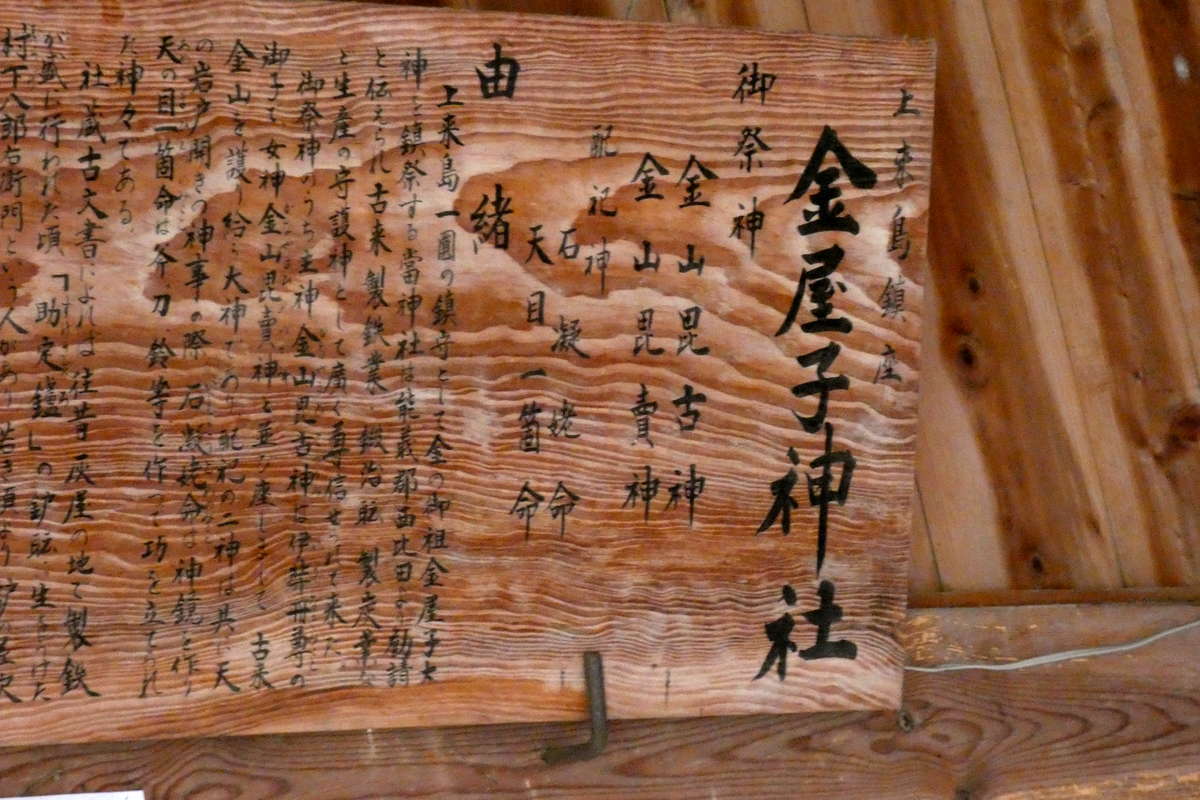 上来島鎮座
金屋子神社
御祭神
金山毘古神
金山毘賣神
配祀神
石凝姥命
天目一箇命
由緒
上来島一圓の鎮守として金の御祖金屋子大
神を鎮祭する當神社は能義郡西比田より勧請
と伝えられ古来製鉄業、鍛冶
と生産の守護神として廣く尊信せられて来た。
御祭神のうち主神金山毘古神は伊弉冊尊の
御子で女神金山毘賣神と並び座しまして 古来
金山を護り給ふ大神であり配祀の二神は共に天
の岩戸開きの神事の際、石凝姥命は神鏡を作り
天の目一箇命は斧、刀、鈴等を作って功を立てられ
た神々である。
社蔵古文書によれば往昔灰屋の地で製鉄
が盛に行われた頃「助定鑪」の
村下八郎右衛門という人があり若き頃より